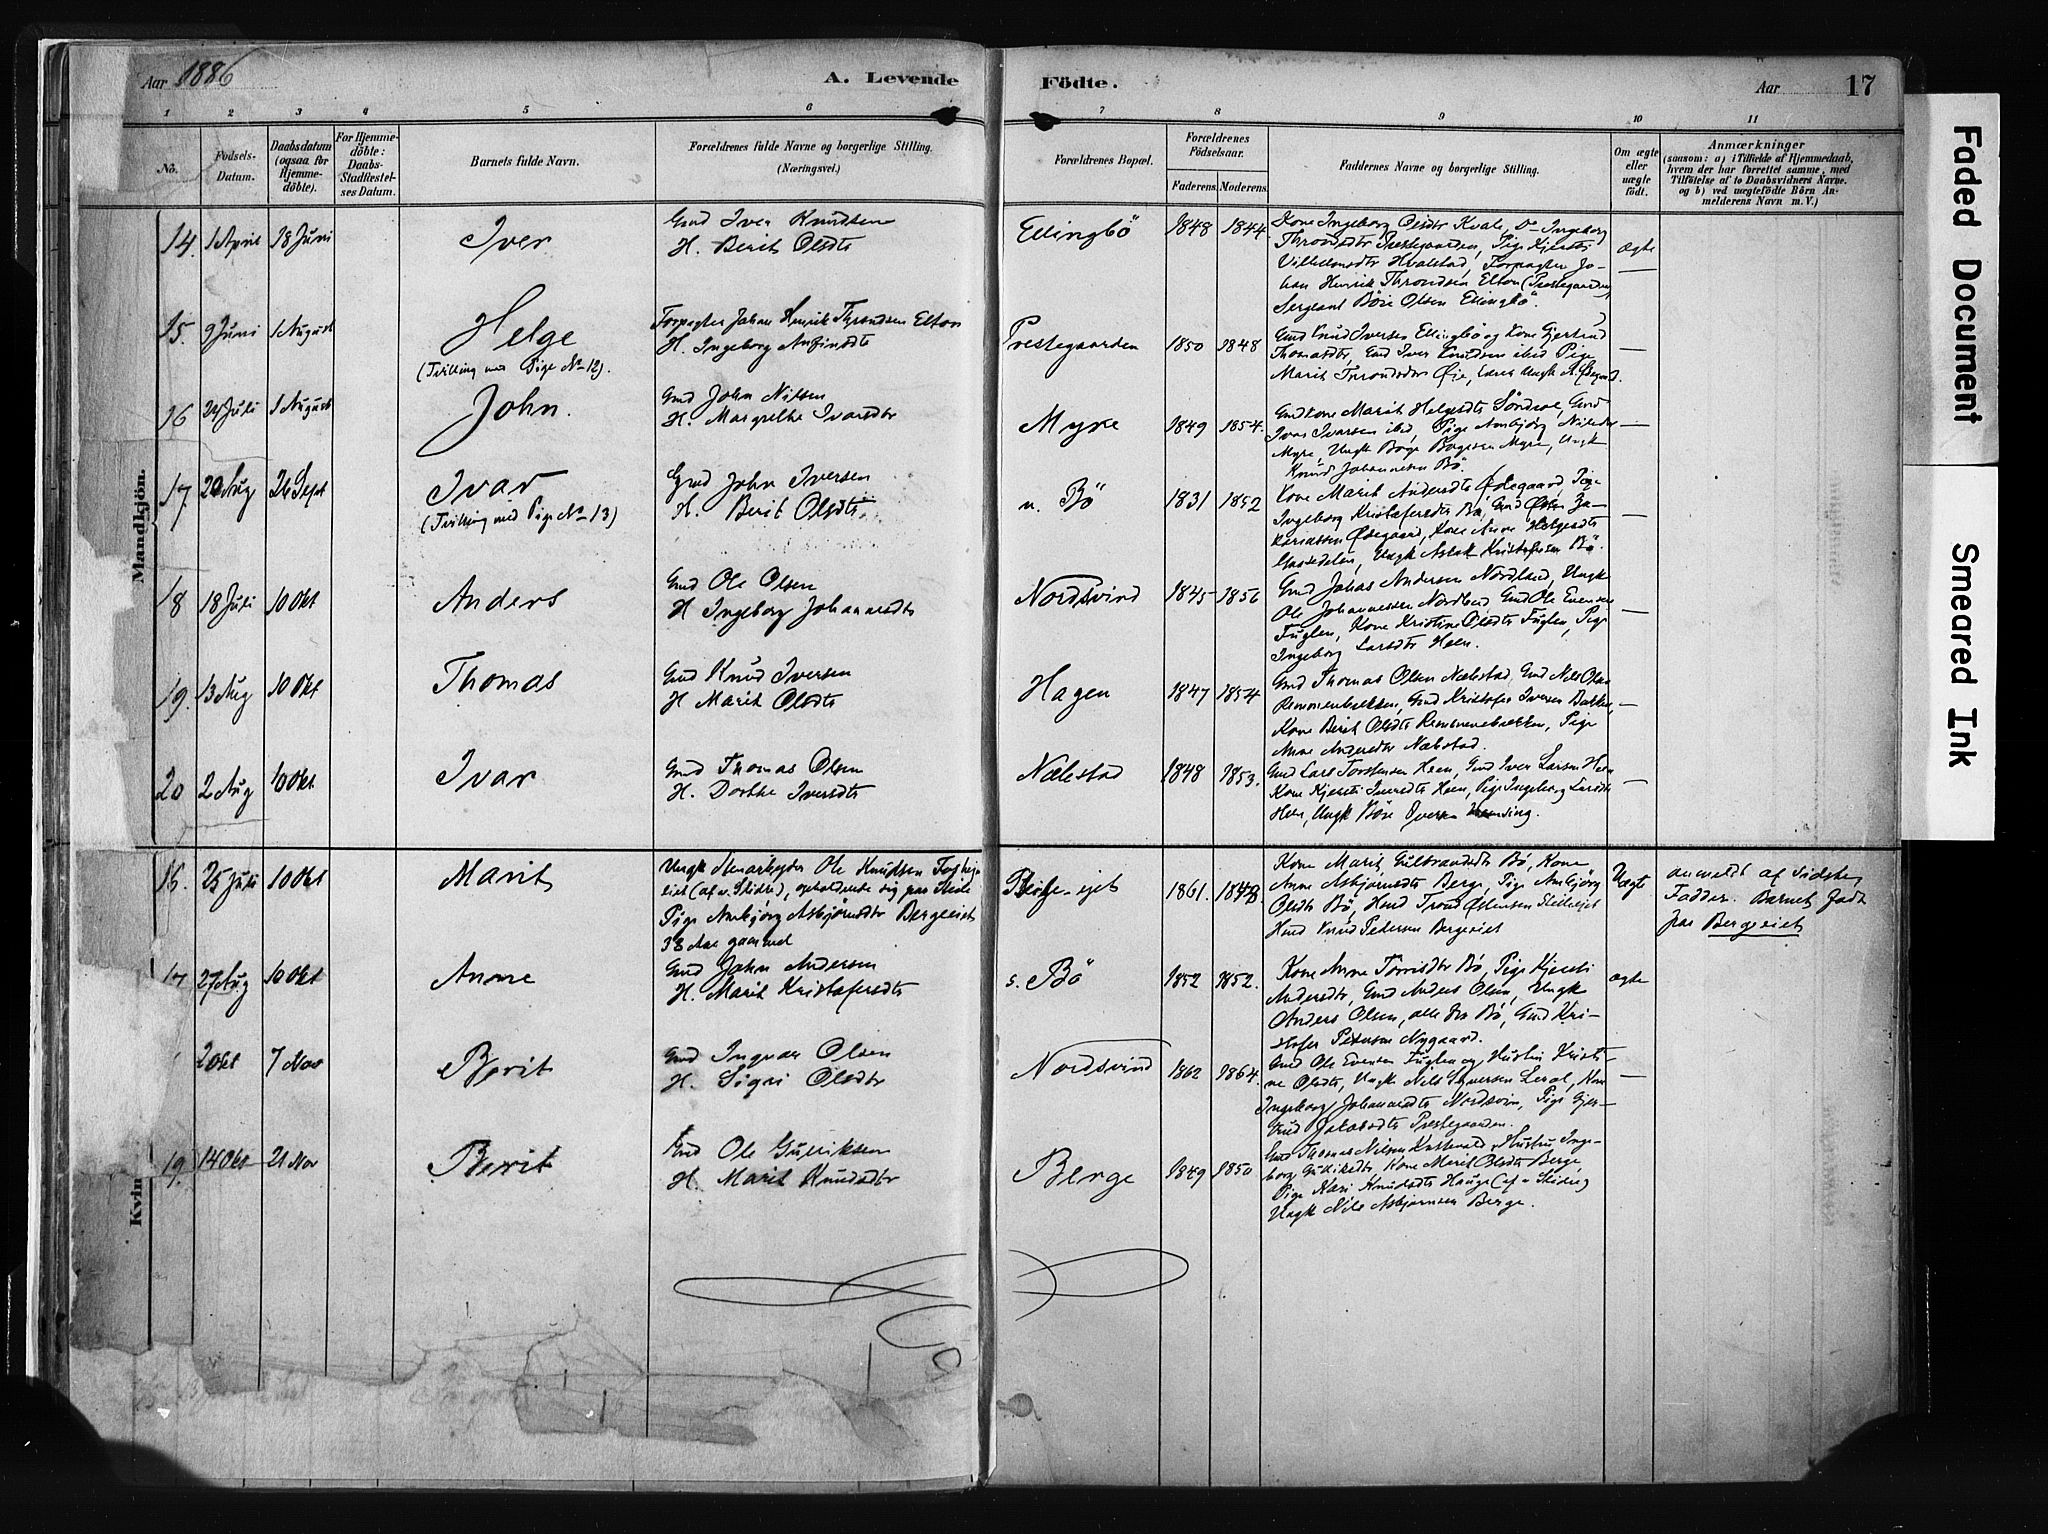 Aar 1886
A. Levende
Födte.
Aar
17
1 2 3 4 5 6 7 8 9 10 11
No.
Födsels-Datum.
Daabsdatum (ogsaa for Hjemme-döbte).
For Hjemme-döbte: Daabs-Stadfæstel-ses Datum.
Barnets fulde Navn.
Forældrenes fulde Navne og borgerlige Stilling. (Næringsvei.)
Forældrenes Bopæl.
Forældrenes Födselsaar.
Faderens. Moderens.
Faddernes Navne og borgerlige Stilling.
Om ægte eller uægte födt.
Anmærkninger
(saasom: a) i Tilfælde af Hjemmedaab,
hvem der har forrettet samme, med
Tilföielse af to Daabsvidners Navne.
og b) ved uægtefödte Börn An-
melderens Navn m. V.)
Mandkjön.
14. 1 April 18 Juni
Iver
Gmd Iver Knudsen
H. Berit Olsdtr
Ellingbö
1848 1844
Kone Ingeborg Olsdtr Kvale, Do Ingeborg
Throndsdtr Prestegaarden, Pige Kjersti
Villelmsdtr Hvalstad, Forpagter Jo-
han Henrik Throndsen Elton (Prestegaarden)
Sergeant Böie Olsen Ellingbö.
ægte
15. 9 Juni 1 August
Helge
(Tvilling med Pige No 12).
Forpagter Johan Henrik Throndsen Elton
H. Ingeborg Anfinsdtr
Prestegaarden
1850 1848
Gmd Knud Iversen Ellingbö og Kone Gjertrud
Thomasdtr, Gmd Iver Knudsen ibid Pige
Marit Throndsdtr Øie,
—
16 24 Juli 1 August
John.
Gmd John Nilsen
H. Margrethe Ivarsdtr
Myre
1849 1854.
Gmdkone Marit Helgesdtr Söndrol, Gmd
Ivar Ivarsen ibid, Pige Ambjörg Nilsdtr
Myre, Ungk Börge Borgersen Myre, Ungk
Knud Johannesen Bö.
—
17. 20 Aug 26 Sept
Ivar
(Tvilling med Pige No 13)
Gmd John Iversen
H. Berit Olsdtr
n. Bö
1831 1852
Kone Marit Andersdtr Ødegaard, Pige
Ingeborg Kristofersdtr Bö, Gmd Østen Za-
kariassen Ødegaard, Kone Anne Helgesdtr
Gaasedelen, Ungk Aslak Kristofersen Bö.
—
18 18 Juli 10 Okt
Anders
Gmd Ole Olsen
H Ingeborg Johannesdtr
Nordsvind
1845 1856
Gmd Johas Andersen Nordland, Ungk
Ole Johannessen Nordland, Gmd Ole Evensen
Fuglen, Kone Kristine Olsdtr Fuglen, Pige
Ingeborg Larsdtr Heen.
—
19. 13 Aug 10 Okt
Thomas
Gmd Knud Iversen
H Marit Olsdtr
Hagen
1847 1854
Gmd Thomas Olsen Nælestad, Gmd Nils Olsen
Remmenbækken, Gmd Kristofer Iversen Bakken,
Kone Berit Olsdtr Remmenebækken, Pige
Anne Andersdtr Nælestad.
—
20 2 Aug 10 Okt.
Ivar
Gmd Thomas Olsen
H. Dorthe Iversdtr
Nælestad
1848 1853.
Gmd Lars Torstensen Heen, Gmd Iver Larsen Heen
Kone Kjersti Iversdtr Heen, Pige Ingeborg Larsdtr
Heen, Ungk Böie Iversen
—
Kvin
16. 25 Juli 10 Okt
Marit
Ungk Stenarbeyder Ole Knudsen
eiet (af v. Slidre), opholdende sig paa Hede
Pige Ambjörg Asbjörnsdtr Bergeeiet
38 Aar gammel
Berge-ejet
1861. 1848.
Kone Marit Gulbrandsdtr Bö, Kone
Anne Asbjörnsdtr Berge, Pige Ambjörg
Olsdtr Bö, Hmd Trond Østensen
Hmd Knud Pedersen Bergeeiet
Uægte
anmeldt af sidste
Fadder. Barnet födt
paa Bergeeiet
17 27 Aug 10 Okt
Anne
Gmd John Andersen
H. Marit Kristofersdtr
s. Bö
1852 1852.
Kone Anne Torrisdtr Bö, Pige Kjersti
Andersdtr, Gmd Anders Olsen, Ungk
Anders Olsen, alle fra Bö, Gmd Kri-
stofer Petersen Nygaard.
ægte
2 Okt 7 Nov
Berit
Gmd Ingvar Olsen
H. Sigri Olsdtr
Nordsvind
1862 1864.
Gmd Ole Evensen Fuglen og Hustru Kristi-
ne Olsdtr, Ungk Nils Syversen Lerol, Kone
Ingeborg Johannesdtr Nordsvin, Pige Gjer-
trud Jakobsdtr Prestegaarden.
—
19. 14 Okt 21 Nov
Berit
Gmd Ole Gulliksen
H. Marit Knudsdtr
Berge
1849 1850
Gmd Thomas Nilsen Kattevold, Hustru Inge-
borg Gulliksdtr, Kone Marit Olsdtr Berge,
Pige Kari Knudsdtr Hauge (af v Slidre)
Ungk Nils Asbjörnsen Berge.
Faded Document
Smeared Ink